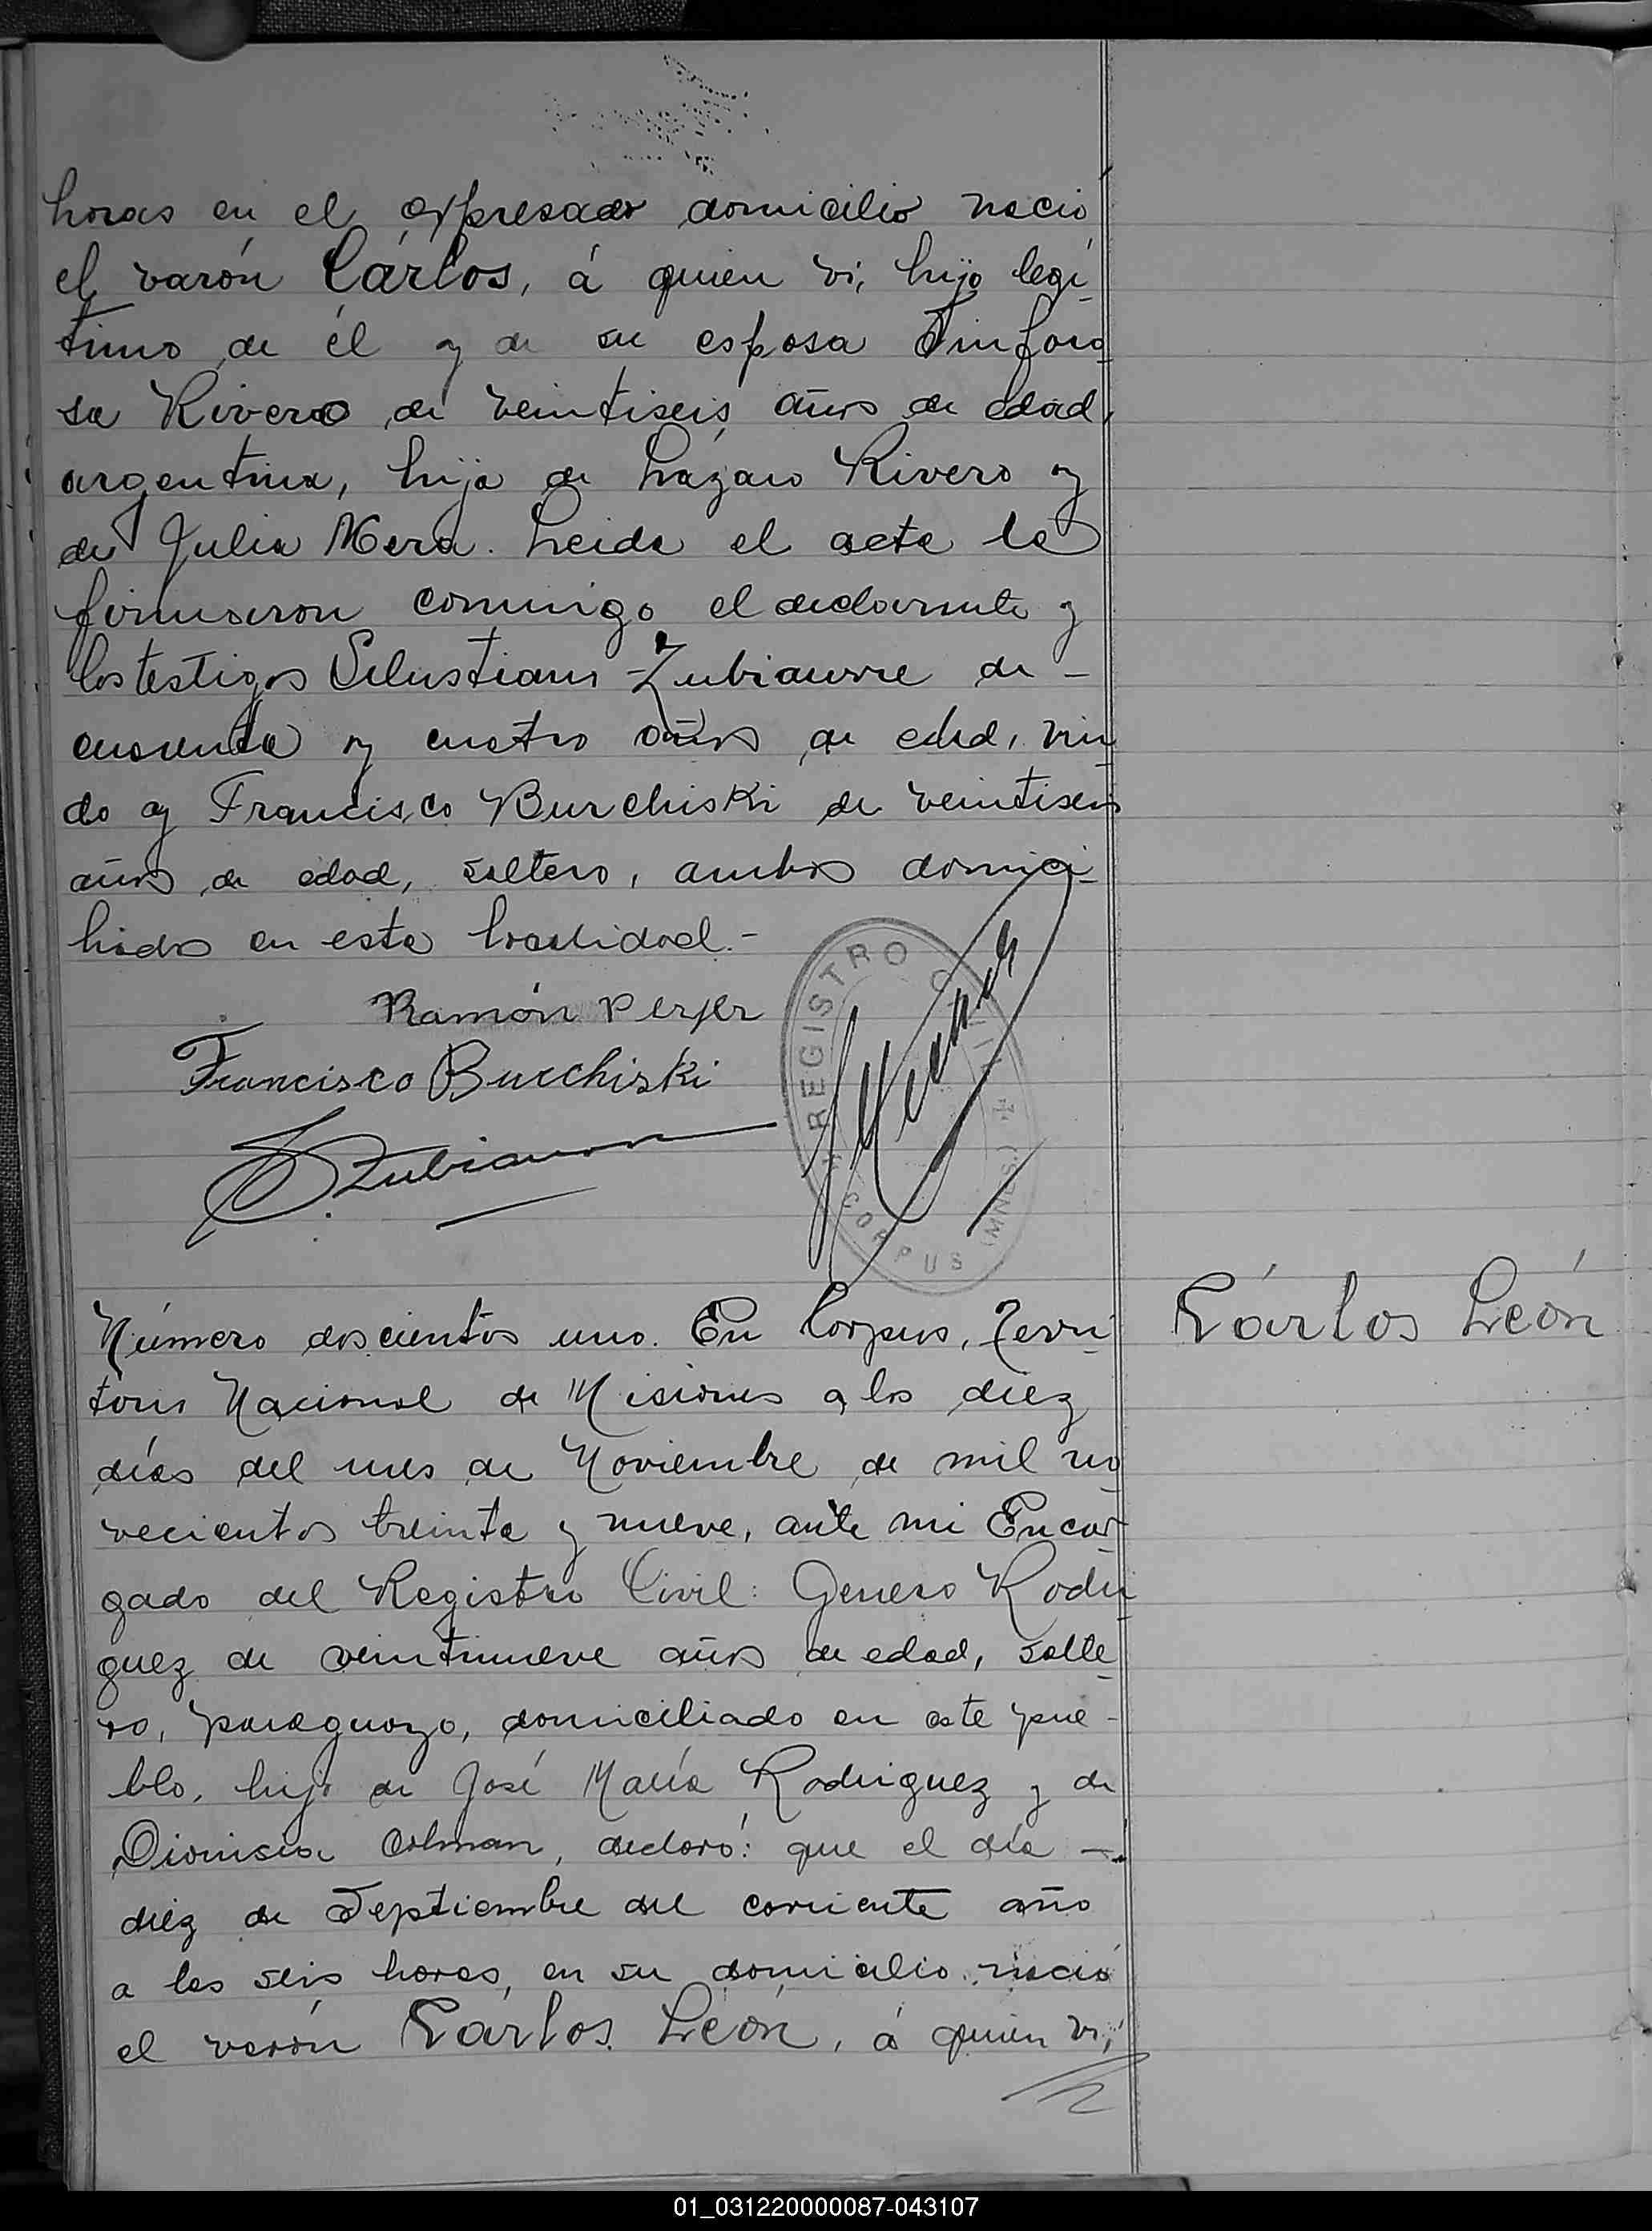 horas en el expresado domicilio nació
el varón Cárlos, á quien vi, hijo legí-
timo de él y de su esposa Sinforo-
sa Rivero de veintiseis años de edad,
argentina, hija de Lázaro Rivero y
de Julia Mera. Leida el acta la
firmaron conmigo el declarante y
los testigos Salustiano Zubiaurre de -
cuarenta y cuatro años de edad, viu-
do y Francisco Burchiski de veintiseis
años de edad, soltero, ambos domici-
liados en esta localidad.-
Ramón
Francisco Burchiski
S. Zubiaurre
REGISTRO CIVIL
CORPUS (MNES.)
Número doscientos uno. En Corpus, Terri-
torio Nacional de Misiones a los diez
días del mes de Noviembre de mil no-
vecientos treinta y nueve, ante mi Encar-
gado del Registro Civil: Genero Rodri-
guez de veintinueve años de edad, solte-
ro, paraguayo, domiciliado en este pue-
blo, hijo de José María Rodriguez y de
Dionicia Colman, declaró: que el día -
diez de Septiembre del corriente año
a las seis horas, en su domicilio nació
el varón Cárlos León, á quien vi,
Cárlos León
01_031220000087-043107